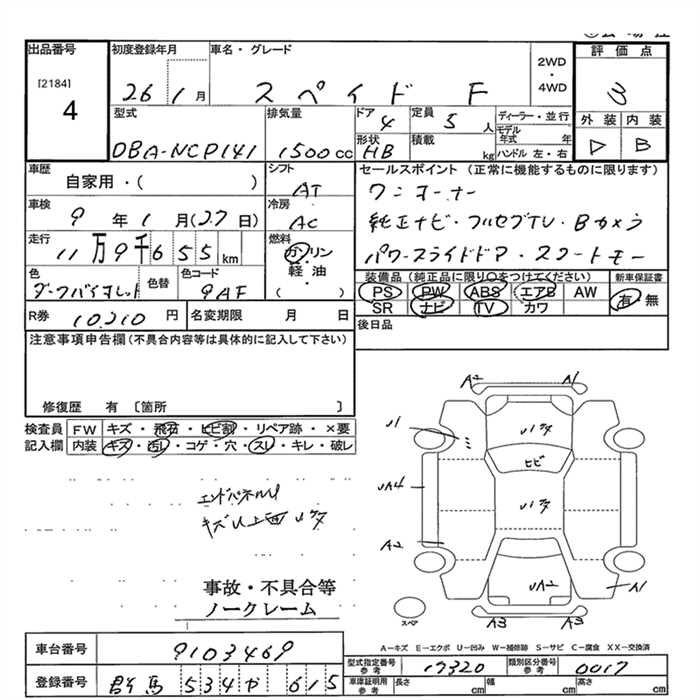 出品番号 初度登録年月 車名・グレード 2WD・4WD 評価点
[2184]
4 26 1月 スペイド F 3
型式 排気量 ドア 4 定員 5人 ディーラー・並行 外装 内装
DBA-NCP141 1500cc 形状 HB 積載 kg モデル年式 年 ハンドル 左・右 B
車歴 自家用・( ) シフト AT セールスポイント (正常に機能するものに限ります)
車検 9年1月(27日) 冷房 AC ワンオーナー
純正ナビ・フルセグTV・Bカメラ
走行 11万9千655km 燃料 ガソリン 軽・油 ( ) パワースライドドア・スマートキー
色 色替 色コード 9AF 装備品 (純正品に限り○をつけてください) 新車保証書
PS PW ABS エアB AW 有・無
SR ナビ TV カワ
R券 10,210円 名変期限 月 日 後日品
注意事項申告欄(不具合内容等は具体的に記入して下さい)
修復歴 有 〔箇所 〕
検査員 FW キズ・飛石・ヒビ割・リペア跡・×要
記入欄 内装 キズ・汚レ・コゲ・穴・スレ・キレ・破レ
A2 A1
U1
ヒビ
UA4
A2
UA2 A1
A3 A3
スペア
エンドパネルU
事故・不具合等
ノークレーム
A-キズ E-エクボ U-凹み W-補修跡 S-サビ C-腐食 XX-交換済
車台番号 9103469
型式指定番号 参考 17320 類別区分番号 参考 0017
登録番号 群馬 534 や 615
車庫証明用 参考 長さ cm 幅 cm 高さ cm